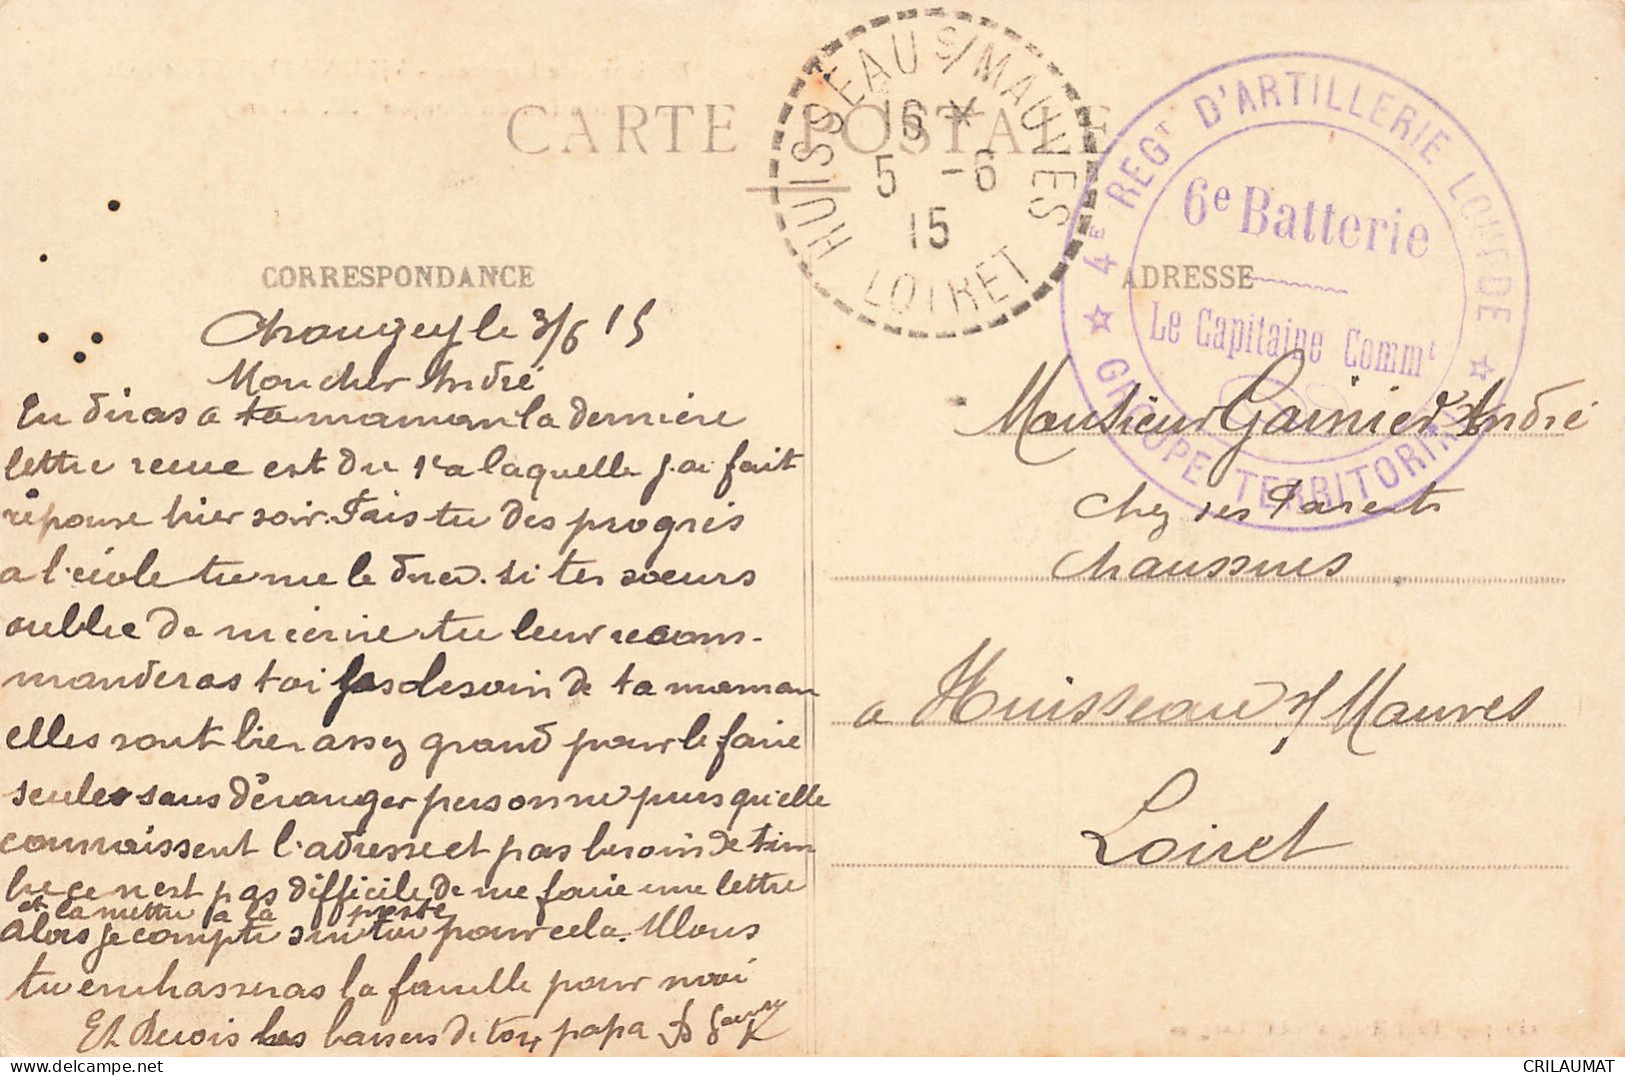 CARTE POSTALE
HUISSEAU S/MAUVES
16 *
5 -6
15
LOIRET
4E REGT D'ARTILLERIE LOURDE
6e Batterie
Le Capitaine Commt
GROUPE TERRITORIAL
CORRESPONDANCE
ADRESSE
le 3/6 15
Mon cher André
Tu diras a ta maman la dernière
lettre reçue est du 1er a laquelle j'ai fait
réponse hier soir. Fais tu des progrès
a l'école tu me le diras. si tes sœurs
oublie de m'écrire tu leur recom-
manderas toi pas besoin de ta maman
elles sont bien assez grand pour le faire
seules sans déranger personne puisqu'elle
connaissent l'adresse et pas besoin de tim
bre ce n'est pas difficile de me faire une lettre
et la mettre à la poste
alors je compte sur toi pour cela. Alors
tu embrasseras la famille pour moi
Et Reçois les baisers de ton papa
Monsieur Garnier André
Chez ses Parents
Chaussures
a Huisseau s/ Mauves
Loiret
CRILAUMAT